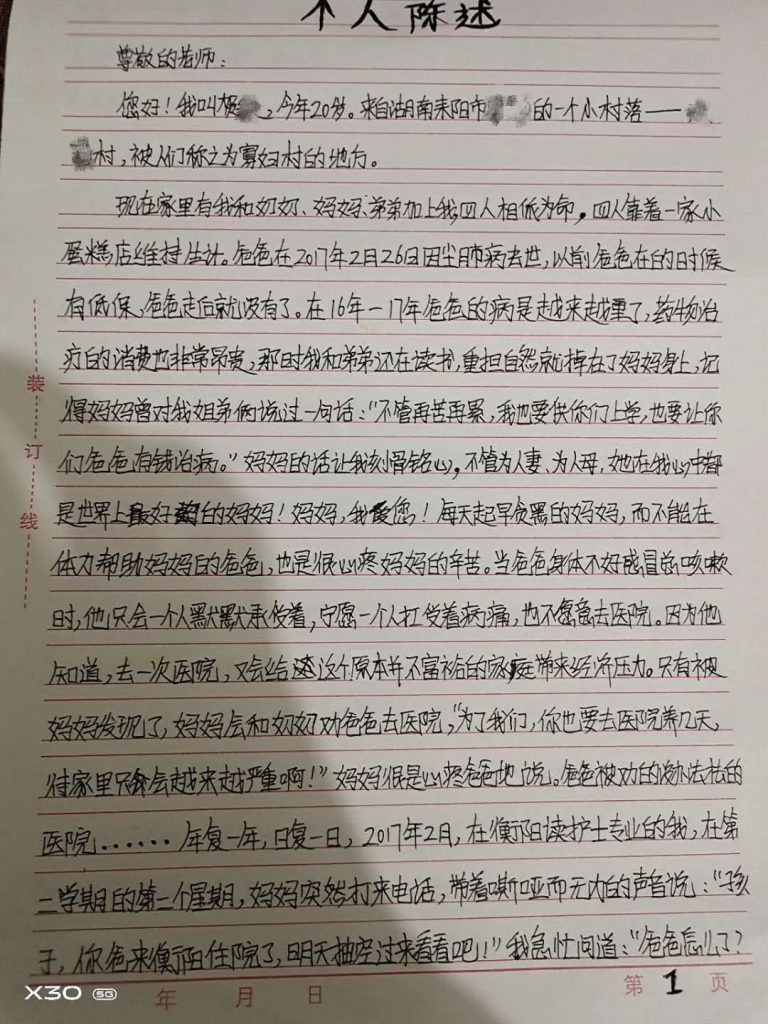 个人陈述
尊敬的老师:
您好!我叫杨,今年20岁。来自湖南耒阳市的一个小村落——
村,被人们称之为寡妇村的地方。
现在家里有我和奶奶、妈妈、弟弟加上我四人相依为命,四人靠着一家小
蛋糕店维持生计。爸爸在2017年2月26日因尘肺病去世,以前爸爸在的时候
有低保,爸爸走后就没有了。在16年-17年爸爸的病是越来越重了,药物治
疗的消费也非常昂贵,那时我和弟弟还在读书,重担自然就掉在了妈妈身上,记
得妈妈曾对我姐弟俩说过一句话:“不管再苦再累,我也要供你们上学,也要让你
们爸爸有钱治病。”妈妈的话让我刻骨铭心,不管为人妻、为人母,她在我心中都
是世界上最好的妈妈!妈妈,我爱您!每天起早贪黑的妈妈,而不能在
体力帮助妈妈的爸爸,也是很心疼妈妈的辛苦。当爸爸身体不好感冒总咳嗽
时,他只会一个人默默承受着,宁愿一个人扛受着病痛,也不愿意去医院。因为他
知道,去一次医院,又会给这个原本并不富裕的家庭带来经济压力。只有被
妈妈发现了,妈妈会和奶奶劝爸爸去医院,“为了我们,你也要去医院养几天,
待家里只会越来越严重啊!”妈妈很是心疼爸爸地说。爸爸被劝的没办法去的
医院......年复一年,日复一日,2017年2月,在衡阳读护士专业的我,在第
二学期的第二个星期,妈妈突然打来电话,带着嘶哑而无力的声音说:“孩
子,你爸来衡阳住院了,明天抽空过来看看吧!”我急忙问道:“爸爸怎么了?
装
订
线
年 月 日
第1页
X30 5G